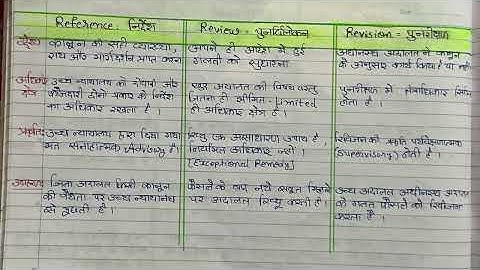 Reference - निर्देश
Review - पुनर्विलोकन
Revision - पुनरीक्षण
उद्देश्य
कानून की सही व्याख्या,
राय और मार्गदर्शन प्राप्त करना
अपने ही आदेश में हुई
गलती को सुधारना
अधीनस्थ अदालत ने कानून
के अनुसार कार्य किया है या नहीं
अधिकार
क्षेत्र
उच्च न्यायालय को दीवानी और
फौजदारी दोनों प्रकार के निर्देश
का अधिकार रखता है।
अदालत की विषय वस्तु
जितना ही सीमित - Limited
ही अधिकार क्षेत्र है।
पुनरीक्षण में क्षेत्राधिकार सीमित
होता है।
प्रकृति
उच्च न्यायालय द्वारा दिया गया
मत सलाहात्मक Advisory है।
रिव्यू एक असाधारण उपाय है,
नियमित अधिकार नहीं।
[Exceptional Remedy]
रिविजन की प्रकृति पर्यवेक्षणात्मक
(Supervisory) होती है।
उदाहरण
जिला अदालत किसी कानून
की वैधता पर उच्च न्यायालय
से पूछती है।
फैसले के बाद नये सबूत मिलने
पर अदालत रिव्यू करती है।
उच्च अदालत अधीनस्थ अदालत
के गलत फैसले को रिविजन
करता है।